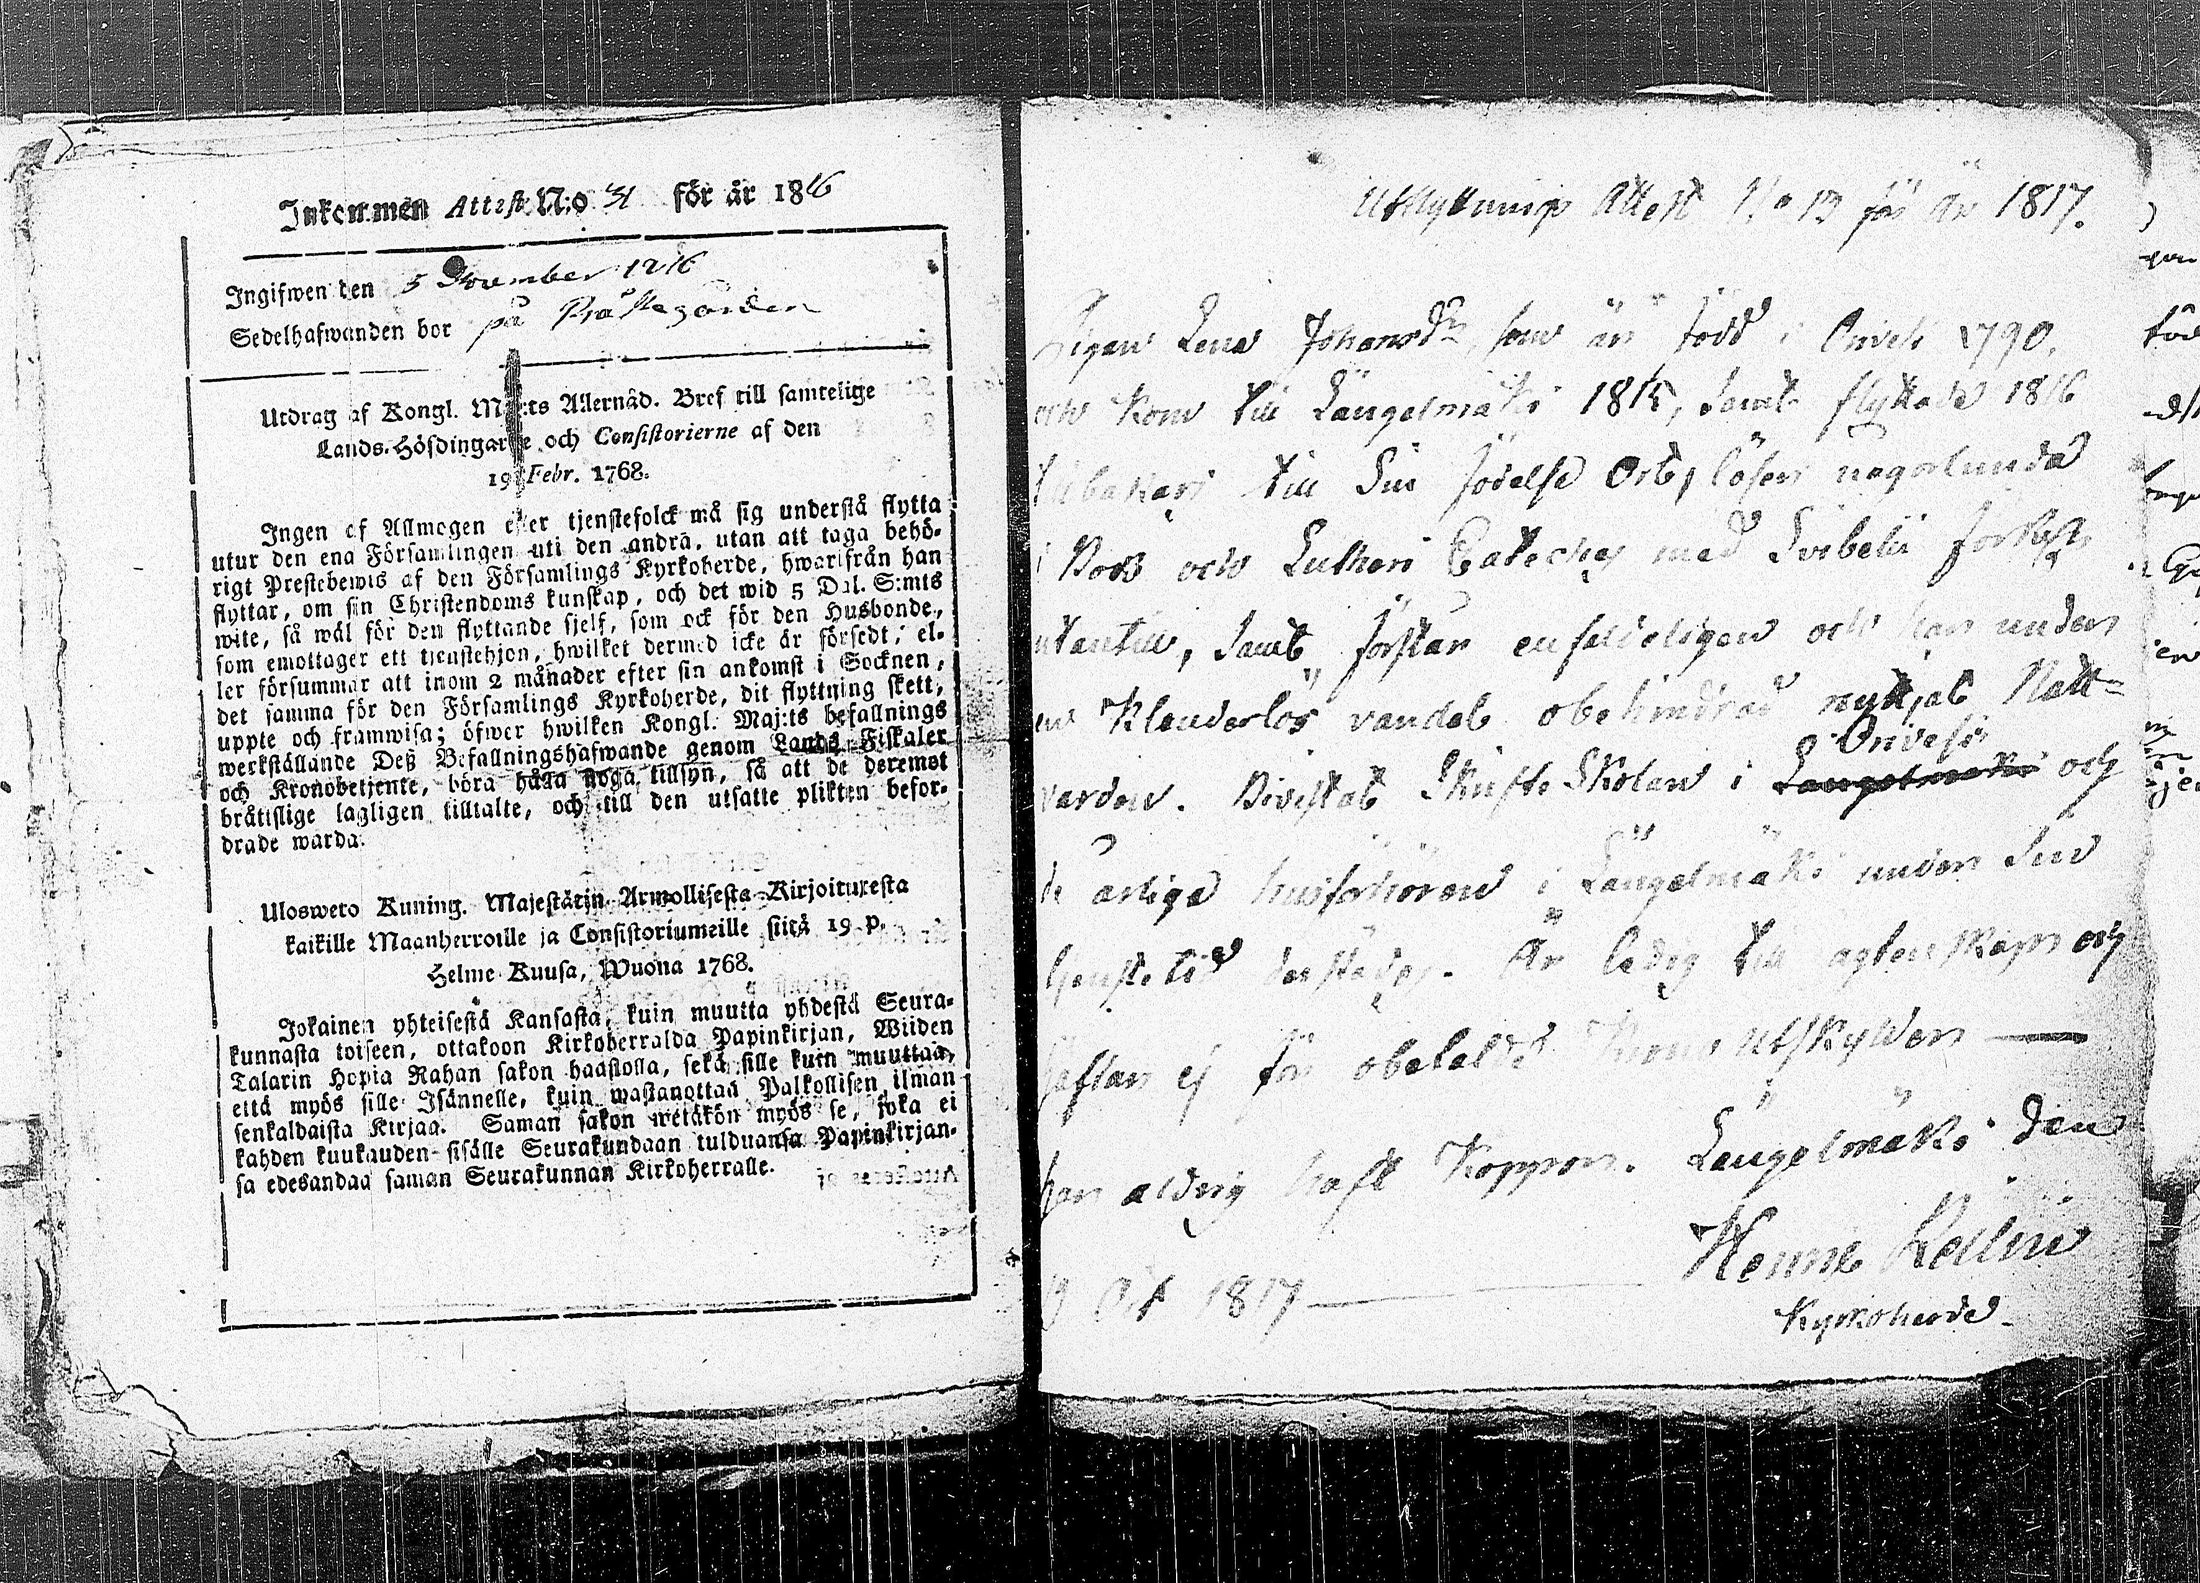 Inkommen Attest N:o 31 för år 1816
Ingifwen den 5 November 1816
Sedelhafwanden bor på Prästegården
Utdrag af Kongl. Maj:ts Allernåd. Bref till samtelige
Lands-Höfdingarne och Consistorierne af den
19 Febr. 1768.
Ingen af Allmogen eller tjenstefolck må sig understå flytta
utur den ena Församlingen uti den andra, utan att taga behö-
rigt Prestebewis af den Församlings Kyrkoherde, hwarifrån han
flyttar, om sin Christendoms kunskap, och det wid 5 Dal. S:mts
wite, så wäl för den flyttande sjelf, som ock för den Husbonde,
som emottager ett tjenstehjon, hwilket dermed icke är försedt, el-
ler försummar att inom 2 månader efter sin ankomst i Socknen,
det samma för den Församlings Kyrkoherde, dit flyttning skett,
uppte och framwisa; öfwer hwilken Kongl. Maj:ts befallnings
werkställande Deß Befallningshafwande genom Lands-Fiskaler
och Kronobetjente, böra hålla noga tillsyn, så att de deremot
bråtislige lagligen tilltalte, och till den utsatte plikten befor-
drade warda.
Ulosweto Kuning. Majestätin Armollisesta Kirjoituxesta
kaikille Maanherroille ja Consistoriumeille siitä 19 p.
Helme Kuusa, Wuona 1768.
Jokainen yhteisestä Kansasta, kuin muutta yhdestä Seura-
kunnasta toiseen, ottakoon Kirkoherralda Papinkirjan, Wiiden
Talarin Hopia Rahan sakon haastolla, sekä sille kuin muuttaa,
että myös sille Isännelle, kuin wastanottaa Palkollisen ilman
senkaldaista Kirjaa. Saman sakon wetäkön myös se, joka ei
kahden kuukauden sisälle Seurakundaan tulduansa Papinkirjan-
sa edesandaa saman Seurakunnan Kirkoherralle.
Utflyttnings Attest N:o 13 för År 1817.
Pigan Lena Johansdr, som är född i Orivesi 1790.
och kom till Längelmäki 1815, samt flyttade 1816
tillbakars till Sin födelse Ort, läser någorlunda
i Bok och Lutheri Cateches med Svebelii förkl.
utantill, samt förstår enfaldeligen och har under
en Klanderlös vandel obehindrad nyttjat Natt=
varden. Bivistat Skrift Skolan i Orivesi och
de årliga husförhören i Längelmäki under sin
tjenste tid derstädes. Är ledig till ägtenskap och
häftar ej för obetalde Krono Utskylder —
har aldrig haft Koppor. Längelmäki den
9 Oct 1817 —
Kyrkoherde.